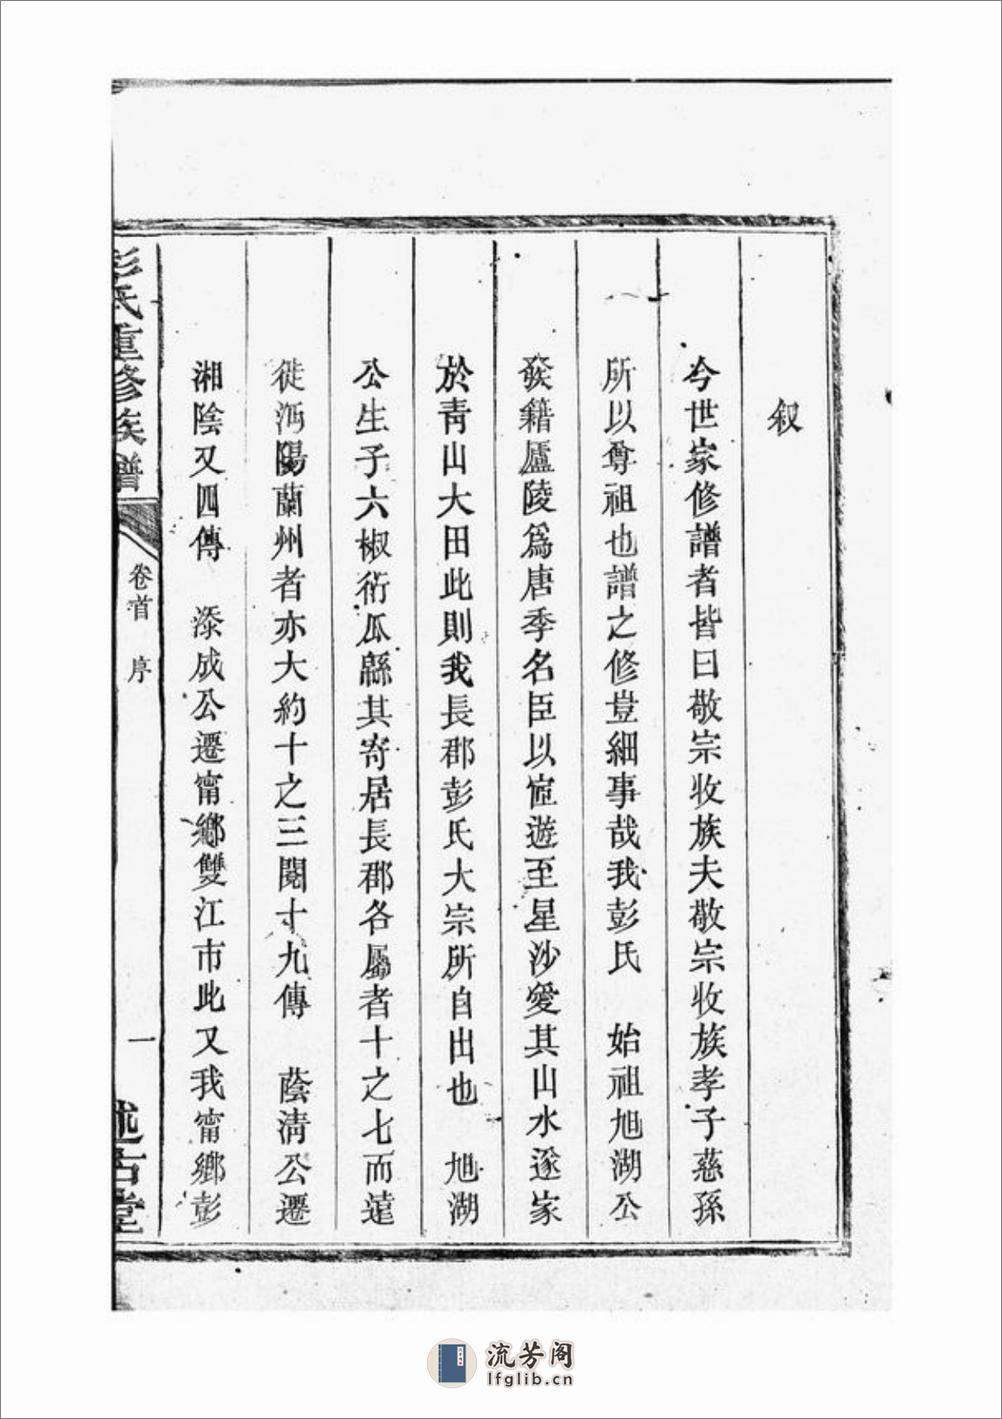 叙
今世家修譜者皆曰敬宗收族夫敬宗收族孝子慈孫
所以尊祖也譜之修豈細事哉我彭氏　始祖旭湖公
發籍廬陵爲唐季名臣以宦遊至星沙愛其山水遂家
於青山大田此則我長郡彭氏大宗所自出也　旭湖
公生子六椒衍瓜緜其寄居長郡各屬者十之七而遠
徙沔陽蘭州者亦大約十之三閱十九傳　蔭清公遷
湘陰又四傳　添成公遷甯鄉雙江市此又我甯鄉彭
彭氏重修族譜
卷首　序
一
述古堂
流芳阁
lfglib.cn